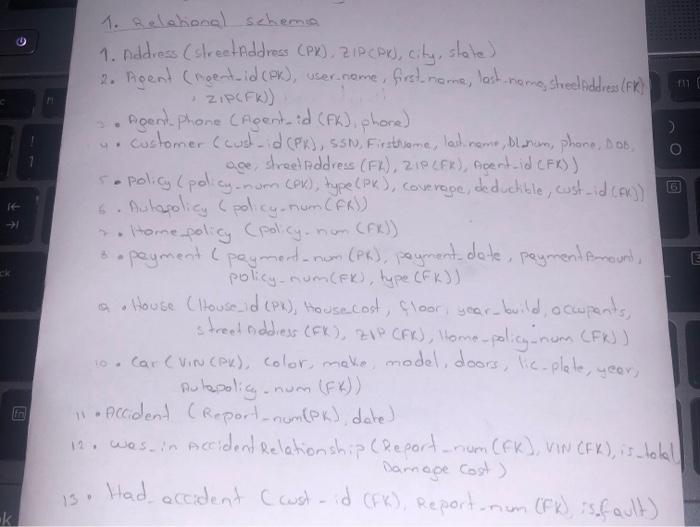 1. Relational schema
1. Address (streetAddress (PK), ZIP(PK), city, state)
2. Agent (Agent-id(PK), user-name, first-name, last-name, streetAddress(FK)
ZIP(FK))
3. Agent-phone (Agent-id (FK), phone)
4. Customer (cust-id(PK), SSN, Firstname, last-name, DLnum, phone, DOB,
age, streetAddress (FK), ZIP(FK), Agent-id(FK))
5. policy (policy-num(PK), type(PK), coverage, deductible, cust-id(FK))
6. Autopolicy (policy-num(FK))
7. Home-policy (policy-num(FK))
8. payment (payment-num(PK), payment-date, paymentAmount,
policy-num(FK), type(FK))
9. House (House-id(PK), House-cost, floor, year-build, occupants,
streetAddress (FK), ZIP(FK), Home-policy-num (FK))
10. Car (VIN(PK), color, make, model, doors, lic-plate, year,
Autopolicy-num(FK))
11. Accident (Report-num(PK), date)
12. was-in Accident Relationship (Report-num(FK), VIN(FK), is-total
Damage Cost)
13. Had-accident (cust-id (FK), Report-num (FK), is-fault)
fn
ck
k
6